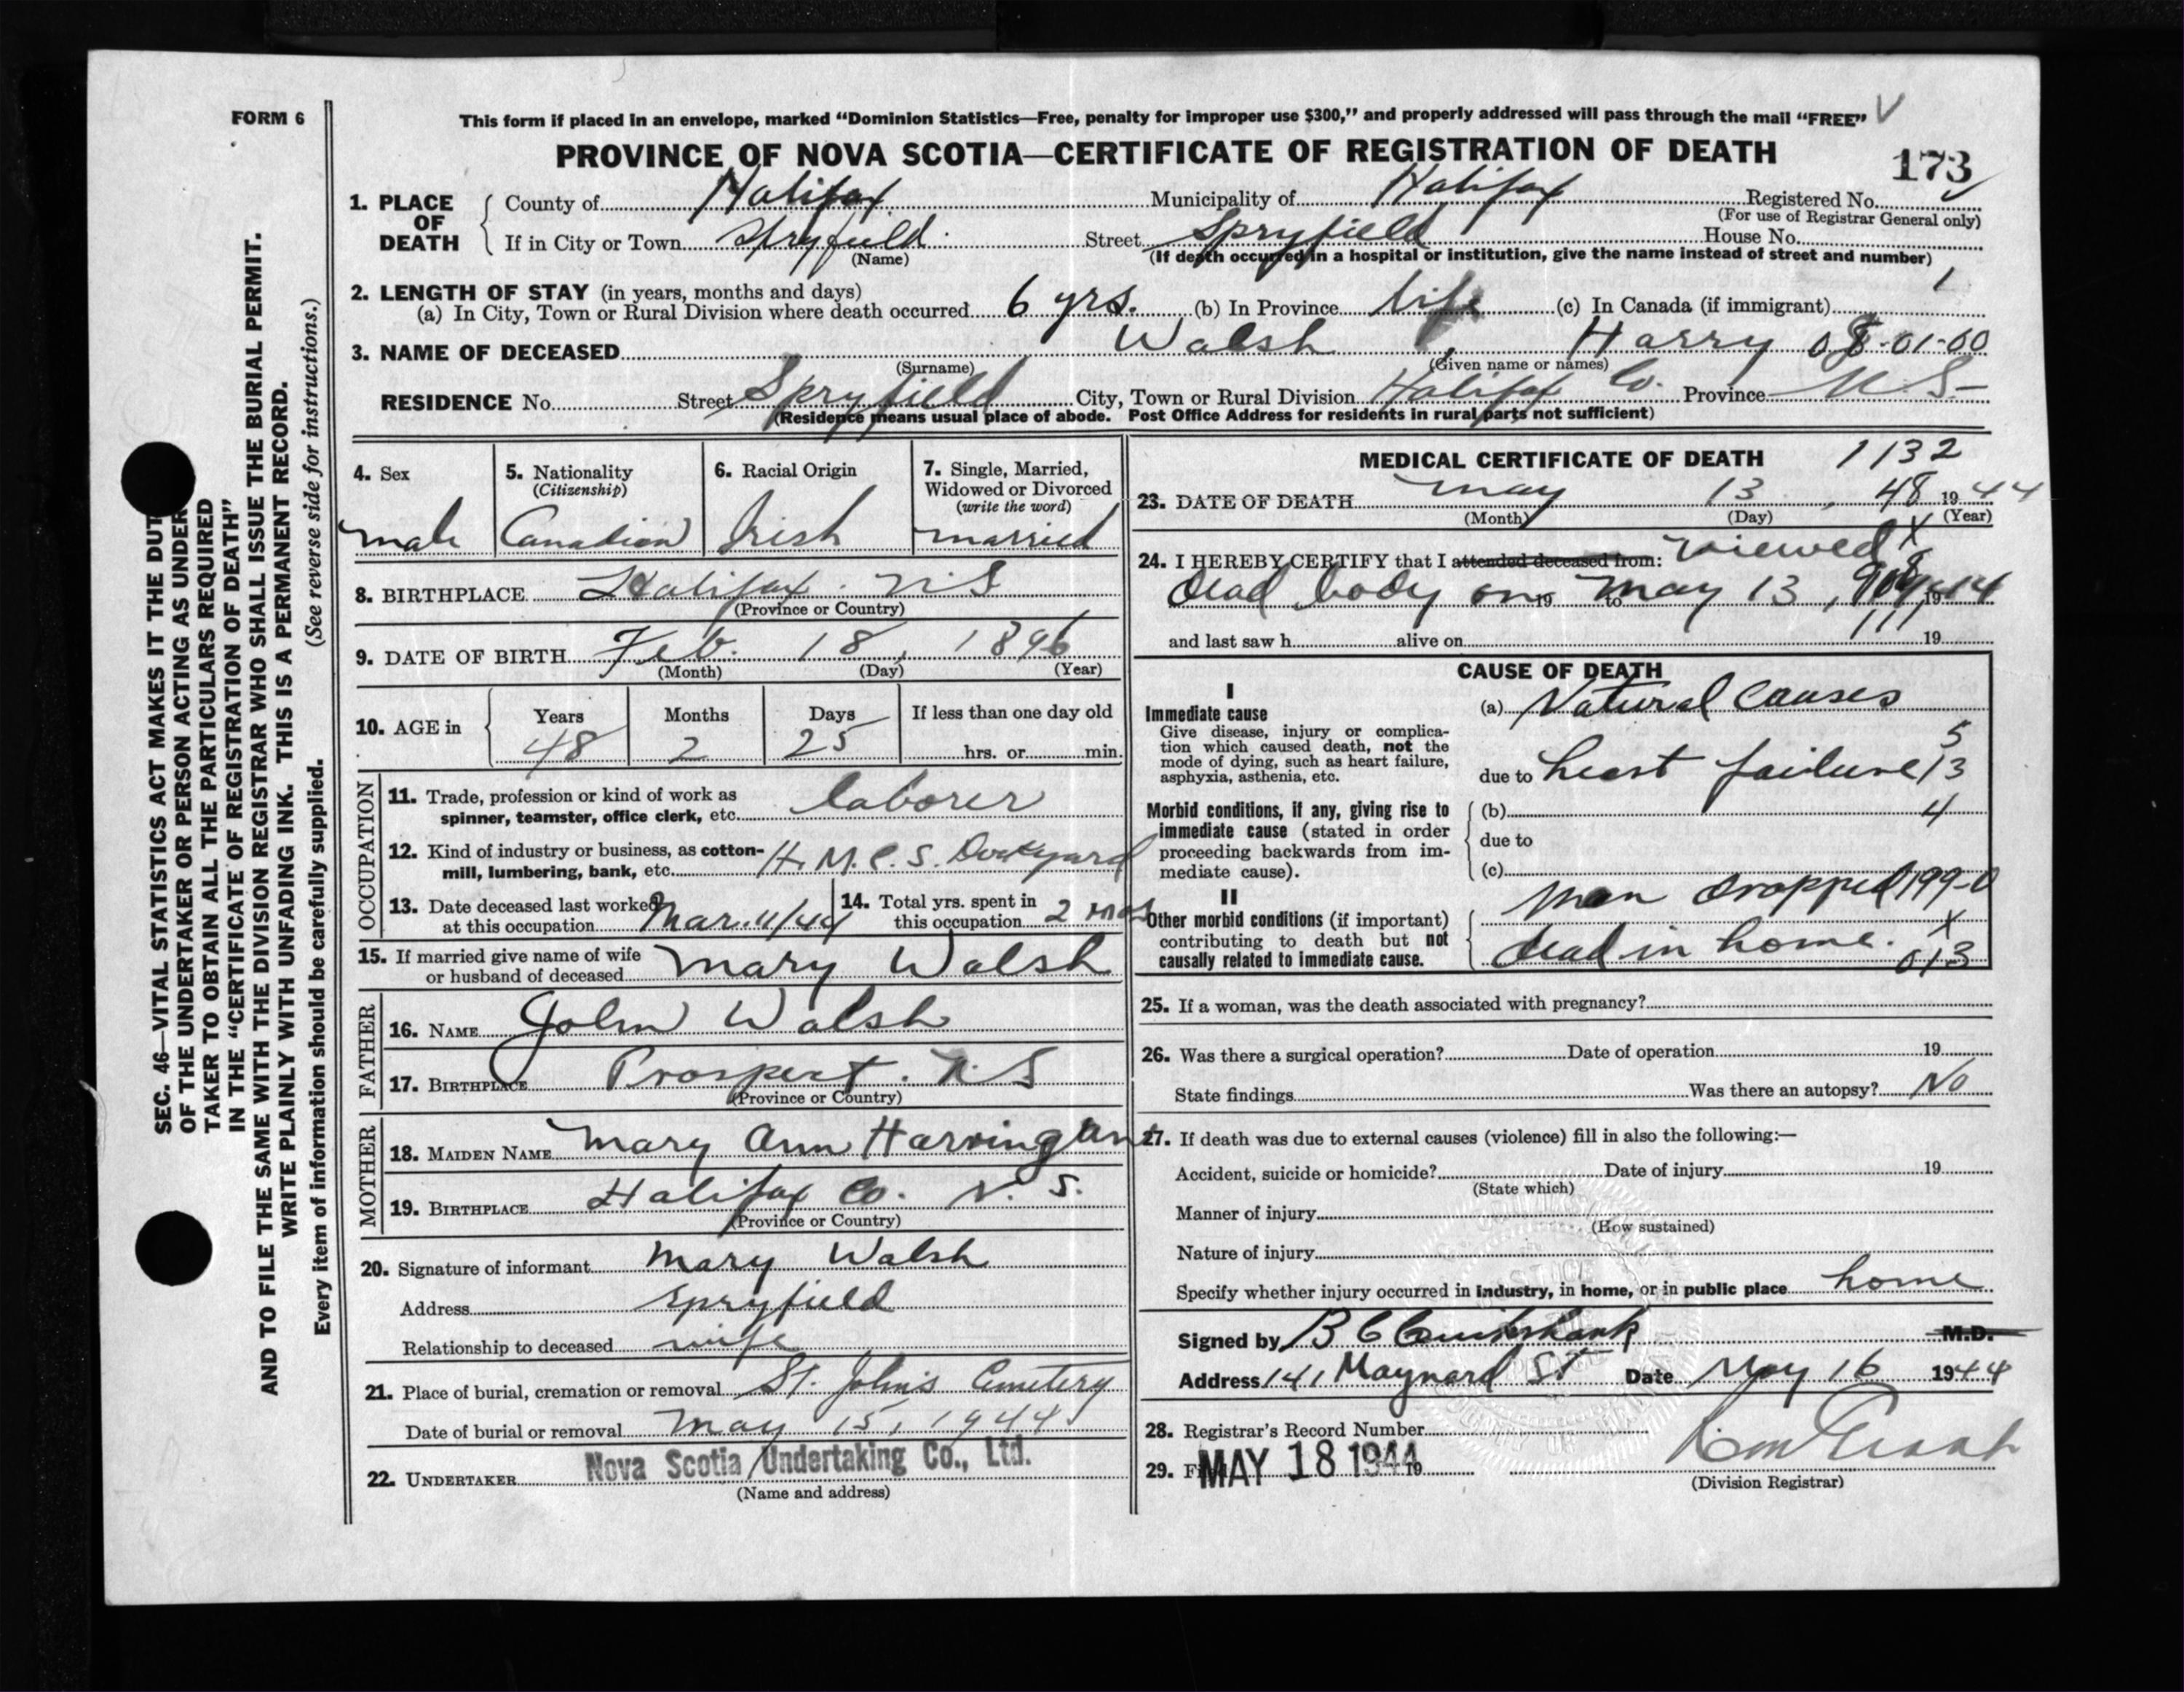 FORM 6
This form if placed in an envelope, marked “Dominion Statistics—Free, penalty for improper use $300,” and properly addressed will pass through the mail “FREE”
PROVINCE OF NOVA SCOTIA—CERTIFICATE OF REGISTRATION OF DEATH
173
1. PLACE OF DEATH County of Halifax Municipality of Halifax Registered No.
(For use of Registrar General only)
If in City or Town Spryfield Street Spryfield House No.
(Name) (If death occurred in a hospital or institution, give the name instead of street and number)
2. LENGTH OF STAY (in years, months and days) 1
(a) In City, Town or Rural Division where death occurred 6 yrs. (b) In Province life (c) In Canada (if immigrant)
3. NAME OF DECEASED Walsh, Harry 08-01-00
(Surname) (Given name or names)
RESIDENCE No. Street Spryfield City, Town or Rural Division Halifax Co. Province N.S.
(Residence means usual place of abode. Post Office Address for residents in rural parts not sufficient)
4. Sex male
5. Nationality (Citizenship) Canadian
6. Racial Origin Irish
7. Single, Married, Widowed or Divorced (write the word) married
8. BIRTHPLACE Halifax. N.S
(Province or Country)
9. DATE OF BIRTH Feb. 18, 1896
(Month) (Day) (Year)
10. AGE in Years 48 Months 2 Days 25 If less than one day old hrs. or min.
OCCUPATION
11. Trade, profession or kind of work as spinner, teamster, office clerk, etc. laborer
12. Kind of industry or business, as cotton-mill, lumbering, bank, etc. H.M.C.S. Dockyard
13. Date deceased last worked at this occupation Mar. 11/44
14. Total yrs. spent in this occupation 2 mos
15. If married give name of wife or husband of deceased Mary Walsh
FATHER
16. NAME John Walsh
17. BIRTHPLACE Prospect. N.S
(Province or Country)
MOTHER
18. MAIDEN NAME Mary Ann
19. BIRTHPLACE Halifax Co. N.S.
(Province or Country)
20. Signature of informant Mary Walsh
Address Spryfield
Relationship to deceased wife
21. Place of burial, cremation or removal St. John's Cemetery
Date of burial or removal May 15, 1944
22. UNDERTAKER Nova Scotia Undertaking Co., Ltd.
(Name and address)
MEDICAL CERTIFICATE OF DEATH 1132
23. DATE OF DEATH May 13, 48 1944
(Month) (Day) (Year)
24. I HEREBY CERTIFY that I attended deceased from: viewed X
dead body on 19 to May 13, 1944
and last saw h alive on 19
CAUSE OF DEATH
I
Immediate cause
Give disease, injury or complication which caused death, not the mode of dying, such as heart failure, asphyxia, asthenia, etc.
(a) Natural Causes
5
due to heart failure 13
Morbid conditions, if any, giving rise to immediate cause (stated in order proceeding backwards from immediate cause).
(b) 4
due to
(c)
II
Other morbid conditions (if important) contributing to death but not causally related to immediate cause.
Man dropped 199-0
X
dead in home. 013
25. If a woman, was the death associated with pregnancy?
26. Was there a surgical operation? Date of operation 19
State findings Was there an autopsy? No
27. If death was due to external causes (violence) fill in also the following:—
Accident, suicide or homicide? Date of injury 19
(State which)
Manner of injury
(How sustained)
Nature of injury
Specify whether injury occurred in industry, in home, or in public place home
Signed by B C Cruikshank M.D.
Address 141 Maynard St Date May 16 1944
28. Registrar's Record Number
29. MAY 18 1944 19
(Division Registrar)
SEC. 46—VITAL STATISTICS ACT MAKES IT THE DUTY
OF THE UNDERTAKER OR PERSON ACTING AS UNDER
TAKER TO OBTAIN ALL THE PARTICULARS REQUIRED
IN THE “CERTIFICATE OF REGISTRATION OF DEATH”
AND TO FILE THE SAME WITH THE DIVISION REGISTRAR WHO SHALL ISSUE THE BURIAL PERMIT.
WRITE PLAINLY WITH UNFADING INK. THIS IS A PERMANENT RECORD.
Every item of information should be carefully supplied. (See reverse side for instructions.)